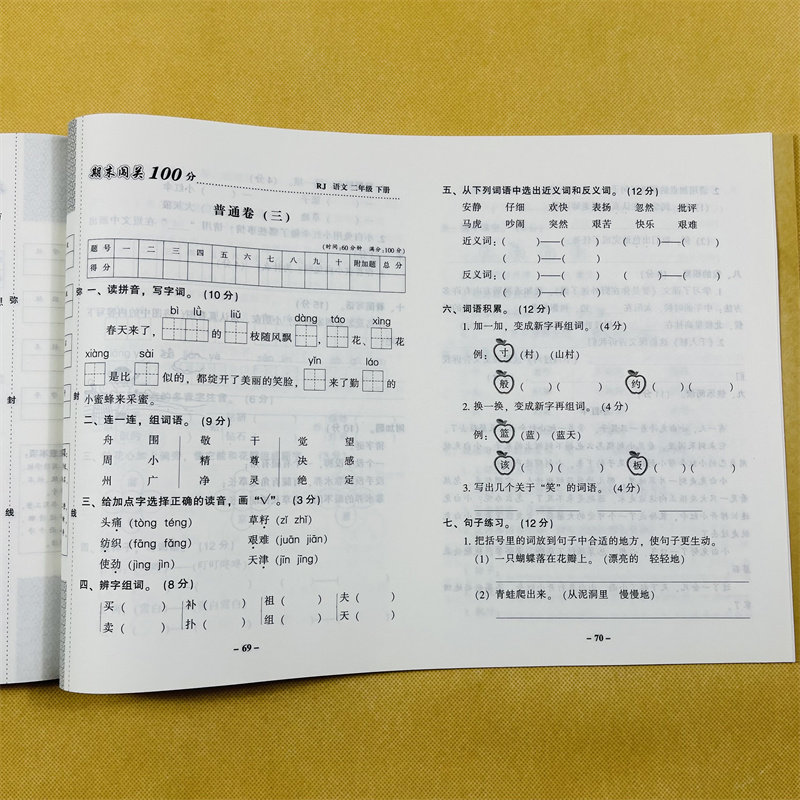 期末闯关100分
RJ 语文 二年级 下册
普通卷（三）
（时间：60分钟 满分：100分）
题号 一 二 三 四 五 六 七 八 九 十 附加题 总分
得分
一、读拼音，写字词。（10分）
bì lǜ liǔ dàng táo xìng
春天来了，的枝随风飘，花、花
xiàng sài yīn láo
是比似的，都绽开了美丽的笑脸，来了勤的
小蜜蜂来采蜜。
二、连一连，组词语。（9分）
舟 围 敬 干 觉 望
周 小 精 尊 决 感
州 广 净 灵 绝 定
三、给加点字选择正确的读音，画“√”。（3分）
头痛（tòng téng） 草籽（zǐ zhǐ）
纺织（fāng fǎng） 艰难（juān jiān）
使劲（jìng jìn） 天津（jīn jīng）
四、辨字组词。（8分）
买（ ） 补（ ） 祖（ ） 夫（ ）
卖（ ） 扑（ ） 组（ ） 天（ ）
- 69 -
五、从下列词语中选出近义词和反义词。（12分）
安静 仔细 欢快 表扬 忽然 批评
马虎 吵闹 突然 艰苦 快乐 艰难
近义词：（ ）—（ ） （ ）—（ ）
（ ）—（ ）
反义词：（ ）—（ ） （ ）—（ ）
（ ）—（ ）
六、词语积累。（12分）
1. 加一加，变成新字再组词。（4分）
例：寸（村）（山村）
般（ ）（ ） 约（ ）（ ）
2. 换一换，变成新字再组词。（4分）
例：篮（蓝）（蓝天）
该（ ）（ ） 板（ ）（ ）
3. 写出几个关于“笑”的词语。（4分）
七、句子练习。（12分）
1. 把括号里的词放到句子中合适的地方，使句子更生动。
（1）一只蝴蝶落在花瓣上。（漂亮的 轻轻地）
（2）青蛙爬出来。（从泥洞里 慢慢地）
- 70 -
弥
封
线
弥
封
线